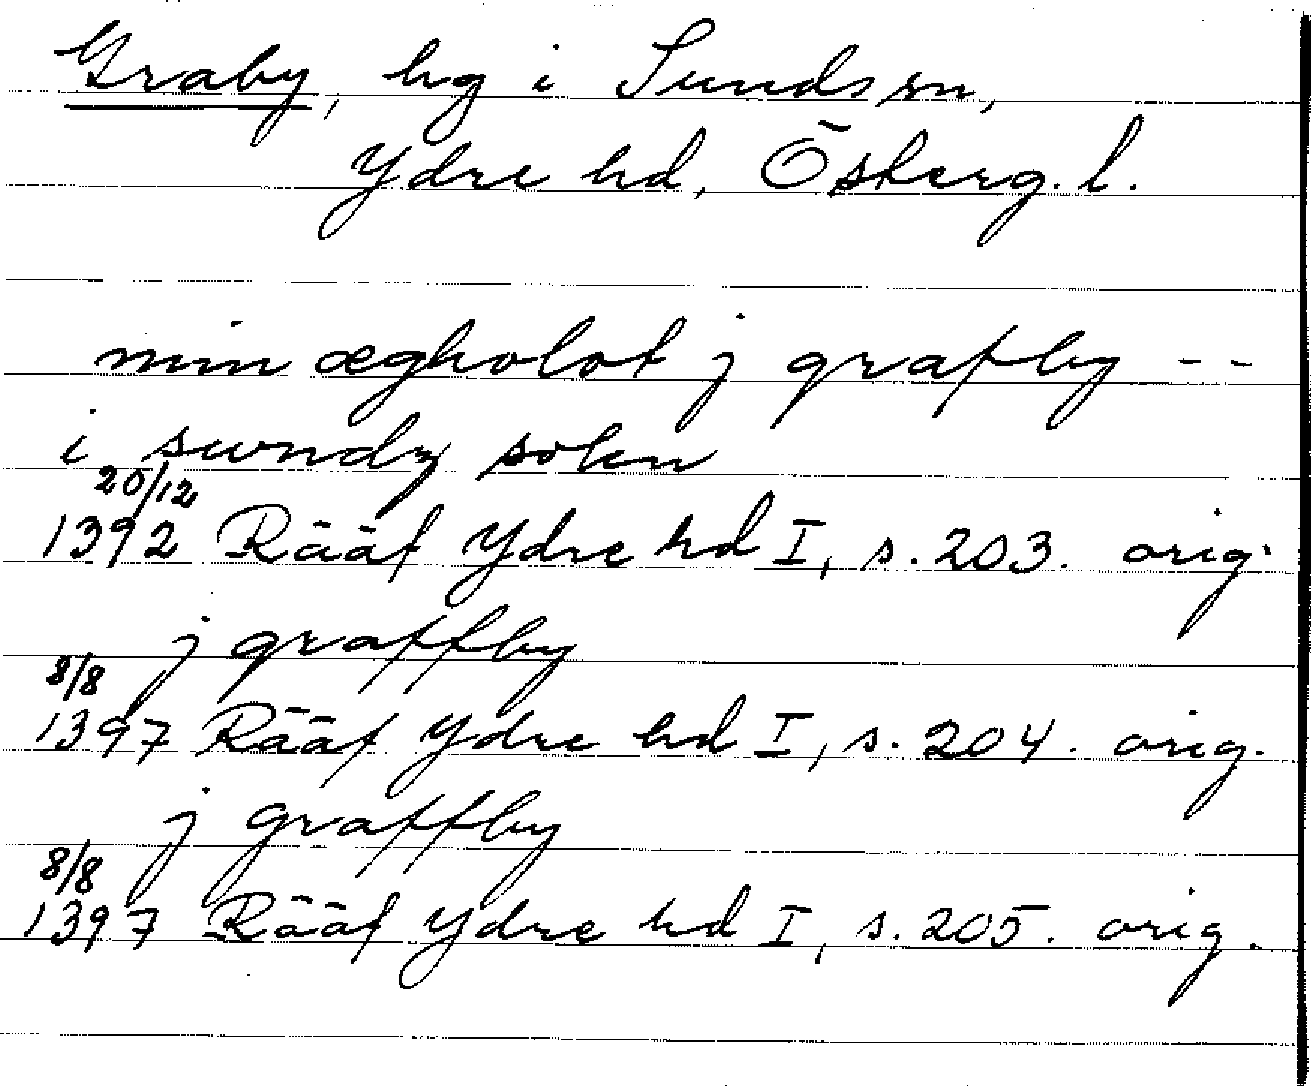 Graby, hg i Sunds sn,
Ydre hd, Österg. l.
min ægholot j grafby --
i swndz sokn
20/12
1392 Rääf Ydre hd I, s. 203. orig.
j graffby
8/8
1397 Rääf Ydre hd I, s. 204. orig.
j graffby
8/8
1397 Rääf Ydre hd I, s. 205. orig.